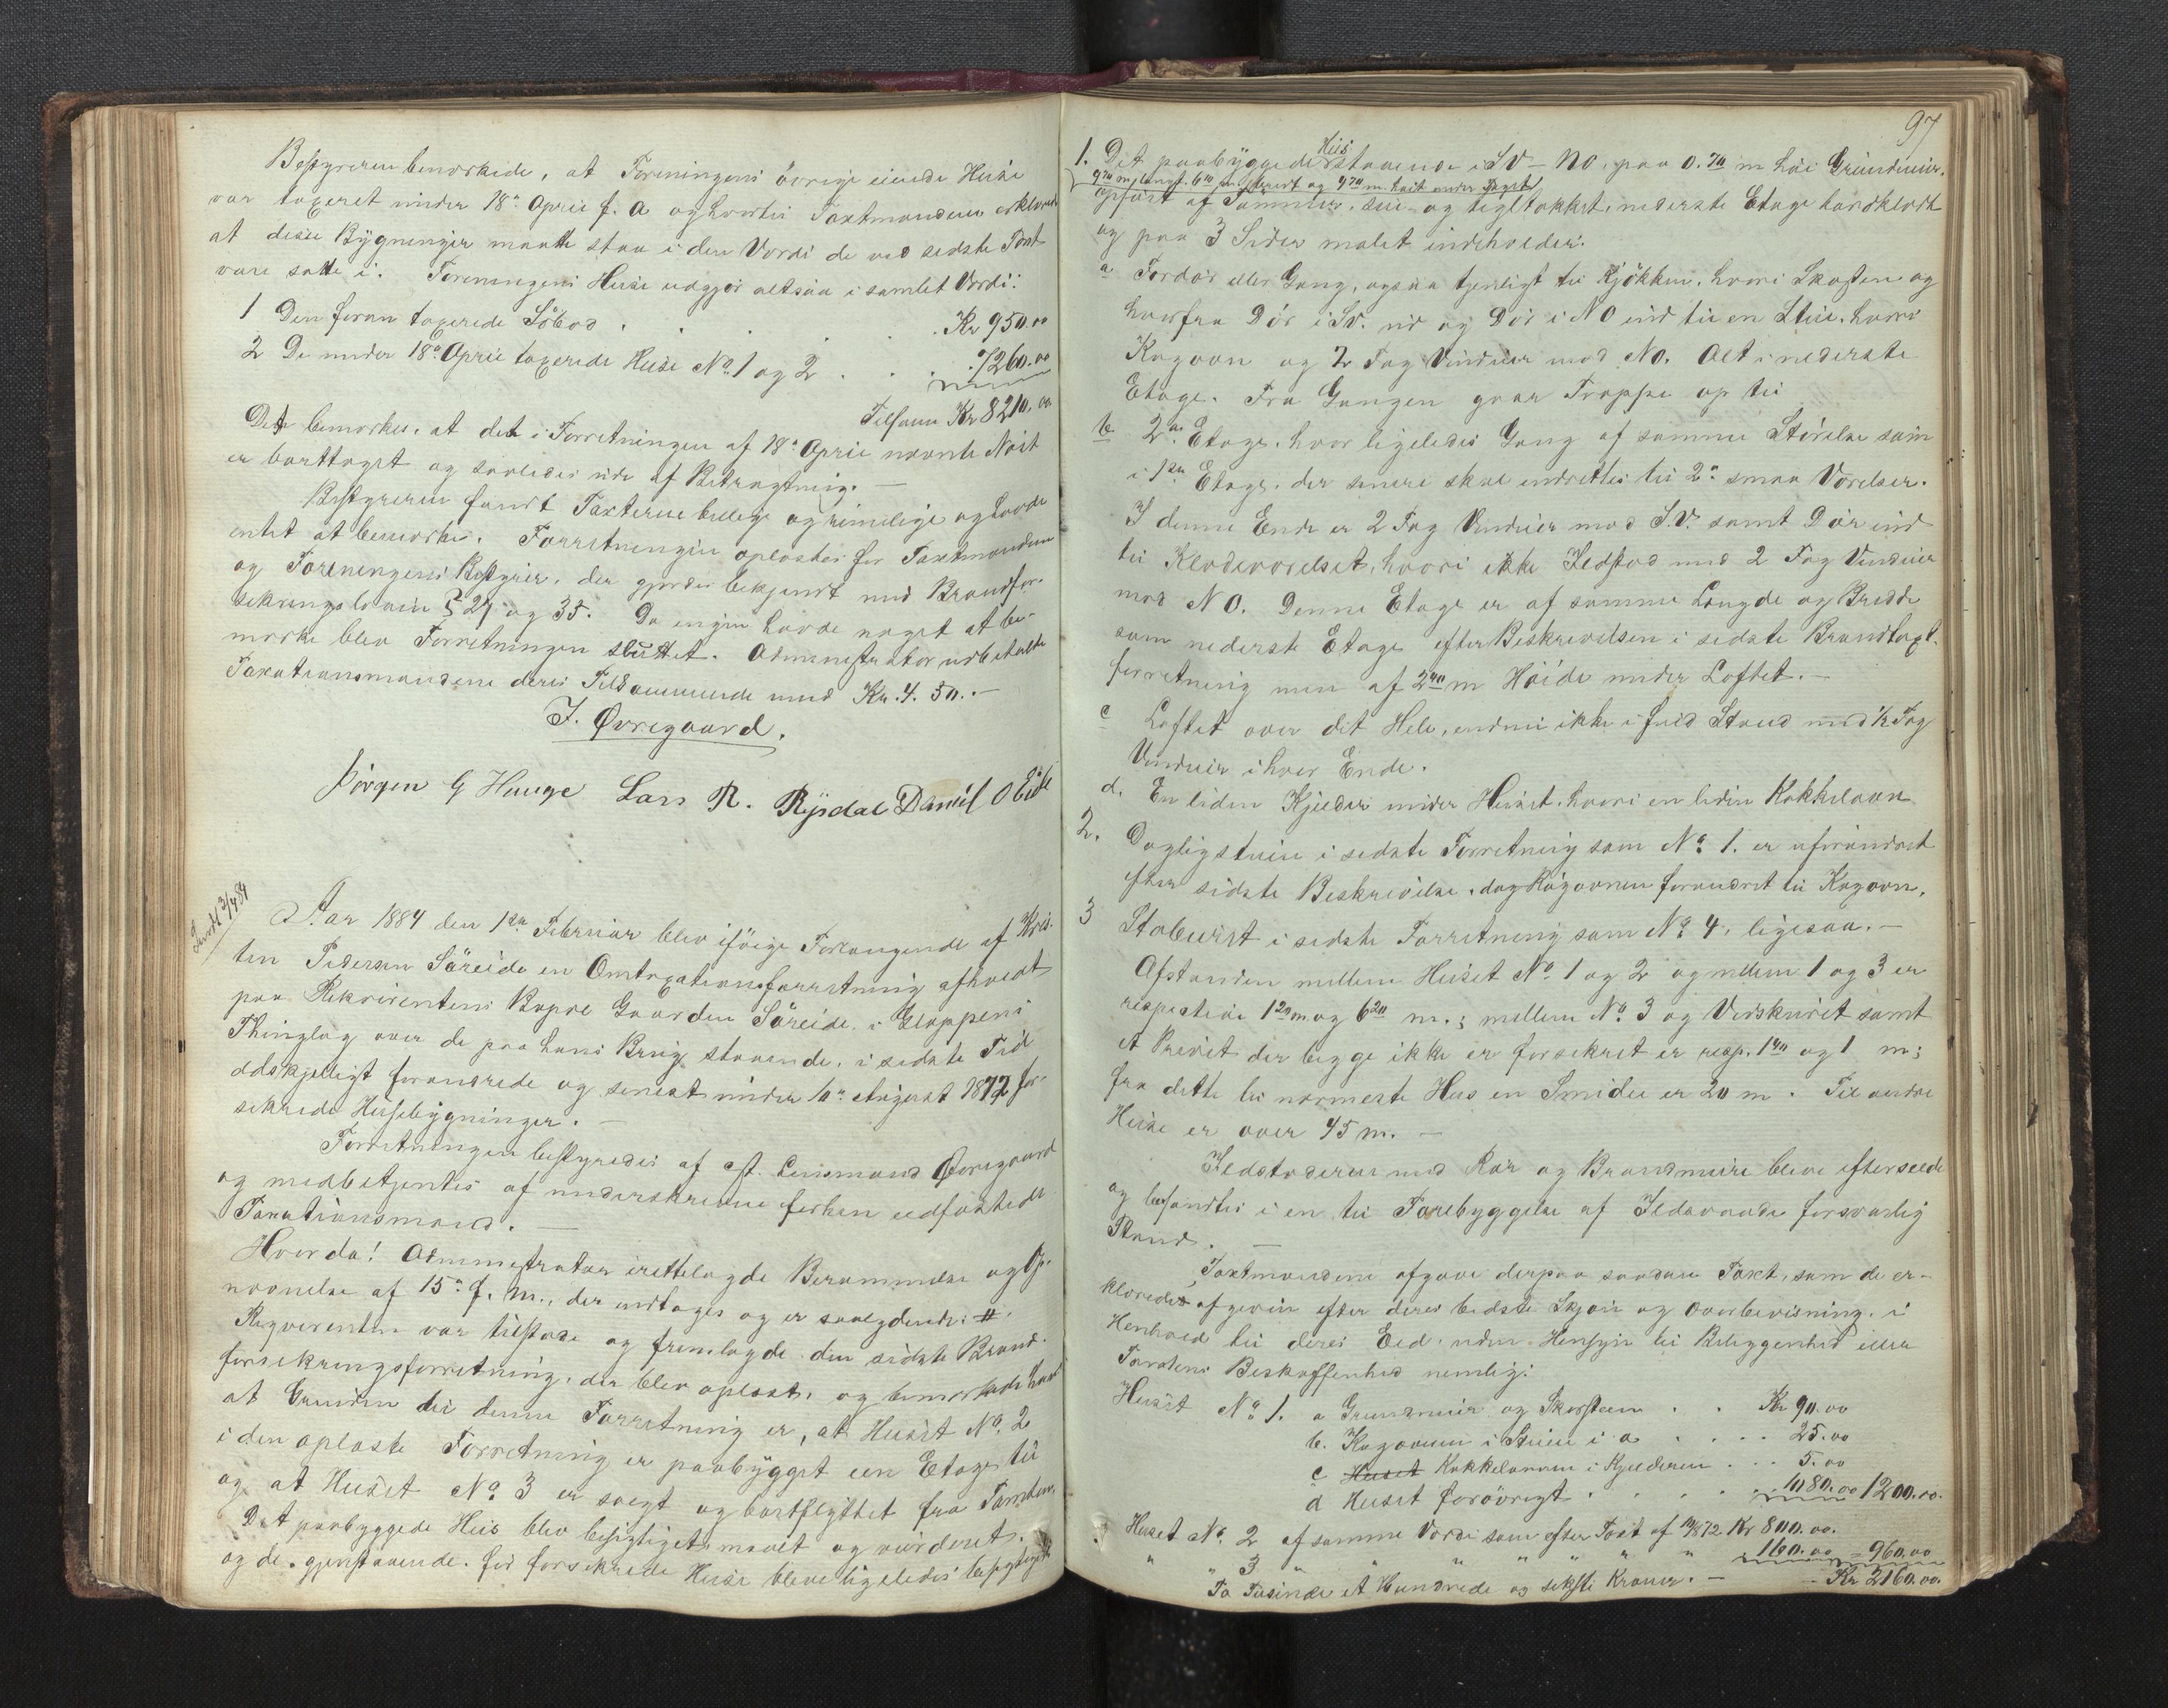 Bestyreren bemærkede, at Foreningens övrige eiende Huse
var taxeret under 18de April f. A. og hvortil Taxtmændene erklærede
at disse Bygninger maatte staa i den Værdi de ved sidste Taxt
vare satte i. Foreningens Huse udgjör altsaa i samlet Værdi:
1 Den foran taxerede Söbod . . . . Kr 950.00
2 De under 18de April taxerede Huse No. 1 og 2 . . . 7260.00
Tilsam Kr 8210.00
Det bemærkes, at det i Forretningen af 18de April nævnte Nöst
er borttaget og saaledes ude af Betragtning. —
Bestyreren fandt Taxterne billige og rimelige og havde
intet at bemærke. Forretningen oplæstes for Taxtmændene
og Foreningens Bestyrer, der gjordes bekjendt med Brandfor-
sikringsloven § 27 og 35. Da ingen havde noget at be-
mærke blev Forretningen sluttet. Administrator udbetalte
Taxationsmændene deres Tilkommende med Kr. 4.50. —
J. Øvregaard.
Jörgen G Hauge Lars R. Rÿsdal Daniel O Eide
Aar 1884 den 1ste Februar blev ifölge Forlangende af Kris-
ten Pedersen Söreide en Omtaxationsforretning afholdt
paa Rekvirentens Bopæl Gaarden Söreide i Gloppens
Thinglag over de paa hans Brug staaende, i sidste Tid
adskjelligt forandrede og senest under 10de August 1872 for-
sikrede Husebygninger. —
Forretningen bestyredes af cst. Lensmand Øvregaard
og medbetjentes af underskrevne forhen eedfæstede
Taxationsmænd. —
Hvorda! Administrator irettelagde Berammelse og Op-
nævnelse af 15de f. M., der indtages og er saalydende: #
Reqvirenten var tilstede og fremlagde den sidste Brand-
forsikringsforretning, der blev oplæst, og bemærkede han
at Grunden til denne Forretning er, at Huset No. 2
i den oplæste Forretning er paabygget een Etage til
og at Huset No. 3 er solgt og bortflyttet fra Tomten.
Det paabyggede Hus blev besigtiget, maalt og vurderet
og de gjenstaaende för forsikrede Huse bleve ligeledes besigtiget.
97
1. Det paabyggede Hus staaende i SV – NO. paa 0.70 m höi Grundmur.
9 70 m langt. 6 10 m. bredt og 4 70 m. höit under Taget
opfört af Tømmer, sue- og tegltækket, nederste Etage bordklædt
og paa 3 Sider malet indeholder:
a Fordör eller Gang, ogsaa tjenligt til Kjökken, hvori Skorsten og
hvorfra Dör i SV. ud og Dör i NO ind til en Stue, hvori
Kogovn og 2 Fag Vinduer mod NO. Alt i nederste
Etage. Fra Gangen gaar Trappe op til
b 2den Etage, hvor ligeledes Gang af samme Störelse som
i 1ste Etage, der senere skal indrettes til 2de smaa Værelser.
I denne Ende er 2 Fag Vinduer mod S.V. samt Dör ind
til Klædeværelset, hvori ikke Ildsted med 2 Fag Vinduer
mod NO. Denne Etage er af samme Længde og Bredde
som nederste Etage efter Beskrivelsen i sidste Brandtaxt-
forretning men af 2 40 m Höide under Loftet. —
c Loftet over det Hele, endnu ikke i fuld Stand med ½ Fag
Vinduer i hver Ende.
d. En liden Kjelder under Huset, hvori en liden Kakkelovn.
2. Dagligstuen i sidste Forretning som No. 1. er uforandret
efter sidste Beskrivelse, dog Rögovnen forandret til Kogovn.
3 Stabburet i sidste Forretning som No. 4, ligesaa. —
Afstanden mellem Huset No. 1 og 2 og mellem 1 og 3 er
respective 1 20 m og 6 20 m.; mellem No. 3 og Vedskuret samt
et Privet der begge ikke er forsikret er resp. 1 40 og 1 m;
fra dette til nærmeste Hus en Smidie er 20 m. Til andre
Huse er over 45 m. —
Ildstederne med Rör og Brandmure bleve efterseede
og befandtes i en til Forebyggelse af Ildsvaade forsvarlig
Stand. —
Taxtmændene afgave derpaa saadan Taxt, som de er-
klærede afgiven efter deres bedste Skjön og Overbevisning, i
Henhold til deres Eed, uden Hensyn til Beliggenhed eller
Tomtens Beskaffenhed nemlig:
Huset No. 1. a Grundmur og Skorsten . . Kr 90.00
b. Kogovnen i Stuen i a . . . . 25.00
c Huset Kakkelovnen i Kjelderen . . . 5.00
d Huset forövrigt . . . . . 1080.00 1200.00.
Huset No. 2 af samme Værdi som efter Taxt af 10/8 72 Kr 800.00.
" 3 " " " " " " 160.00 = 960.00
To Tusinde et Hundrede og seksti Kroner. — Kr 2160.00.